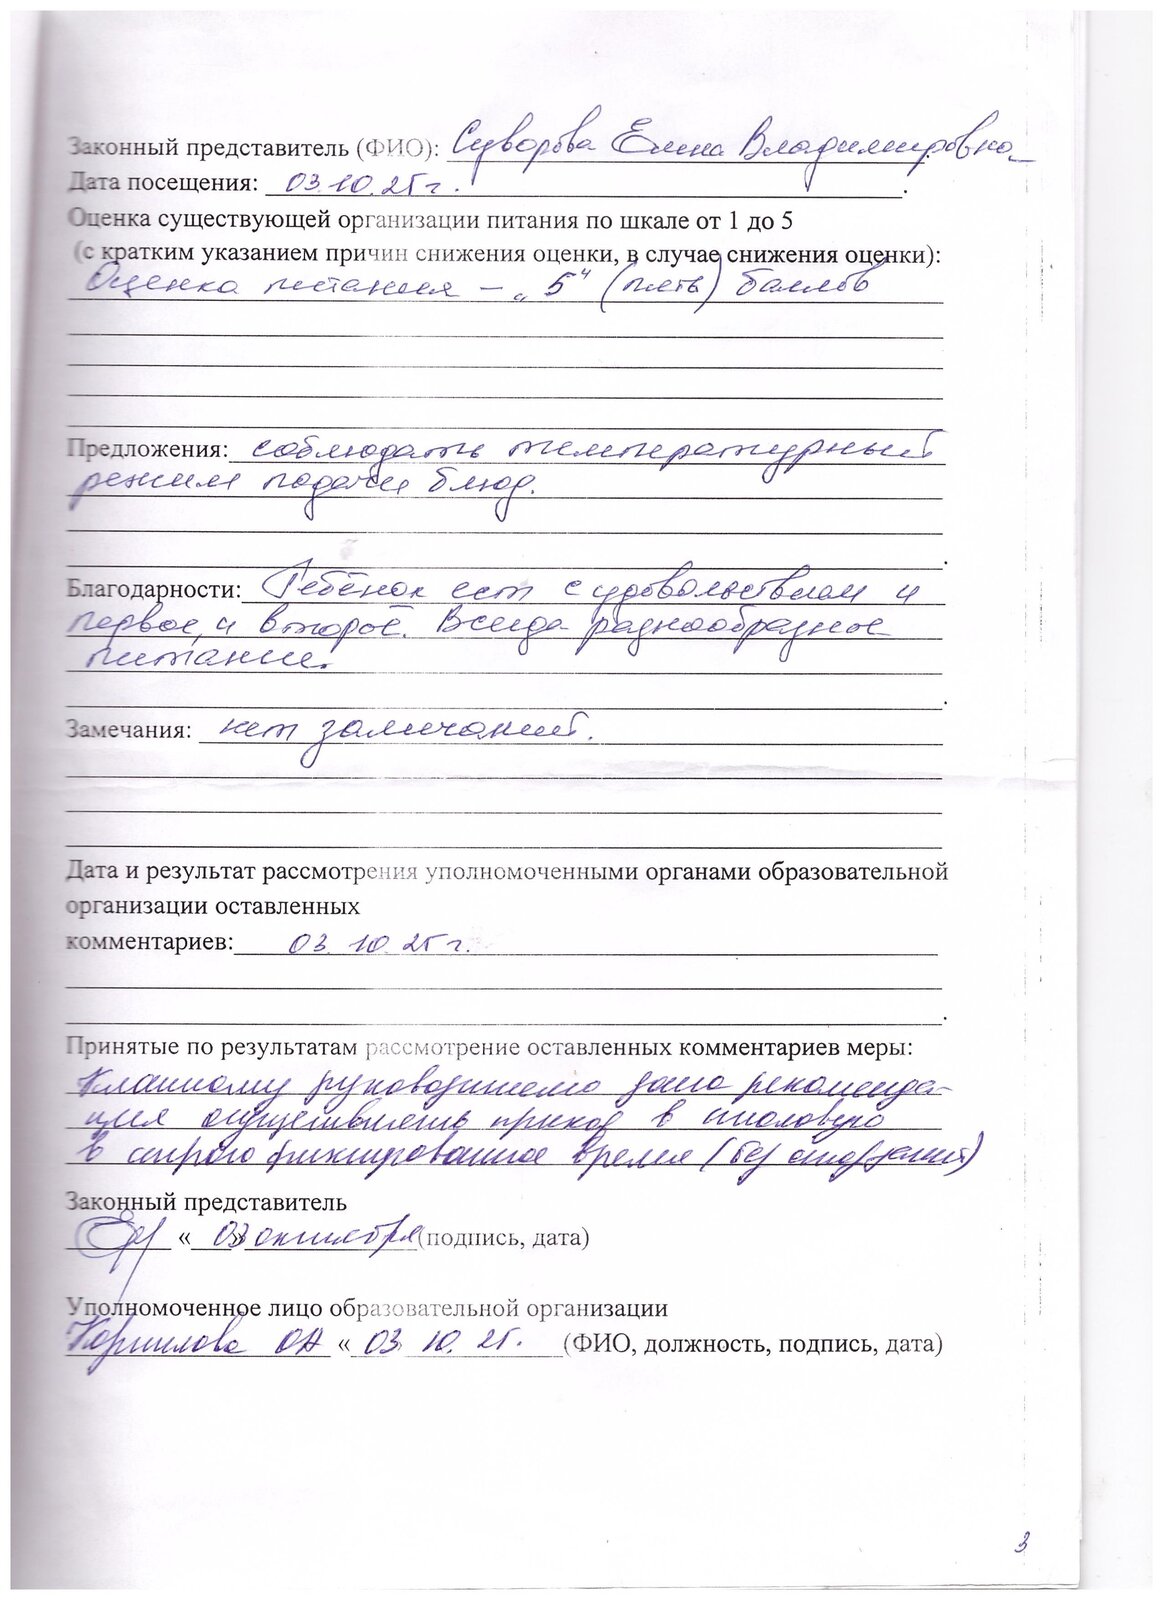 Законный представитель (ФИО): Суворова Елена Владимировна
Дата посещения: 03.10.25 г.
Оценка существующей организации питания по шкале от 1 до 5
(с кратким указанием причин снижения оценки, в случае снижения оценки):
Оценка питания – „5“ (пять) баллов
Предложения: соблюдать температурный
режим подачи блюд.
Благодарности: Ребёнок ест с удовольствием и
первое, и второе. Всегда разнообразное
питание.
Замечания: нет замечаний.
Дата и результат рассмотрения уполномоченными органами образовательной
организации оставленных
комментариев: 03.10.25 г.
Принятые по результатам рассмотрение оставленных комментариев меры:
Классному руководителю дана рекоменда-
ция осуществлять приход в столовую
в строго фиксированное время (без опозданий)
Законный представитель
« 03 » октября (подпись, дата)
Уполномоченное лицо образовательной организации
Корнилова ОА « 03. 10. 25г. (ФИО, должность, подпись, дата)
3